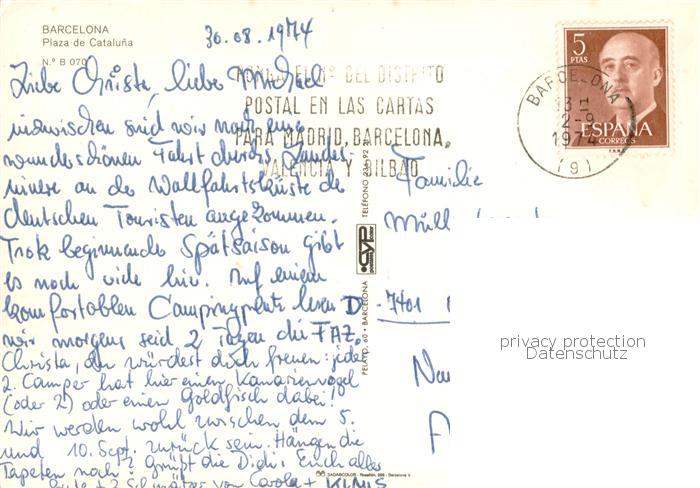 BARCELONA
Plaza de Cataluña
N.º B 070
30.08.1974
Liebe Christa, liebe Michael
inzwischen sind wir nach eine
wunderschönen Fahrt durchs Landes-
innere an der Wallfahrtsküste der
deutschen Touristen angekommen.
Trotz beginnende Spätsaison gibt
es noch viele hier. Auf einem
komfortablen Campingplatz lesen
wir morgens seid 2 Tagen die FAZ.
Christa, du würdest dich freuen: jeder
2. Camper hat hier einen Kanarienvogel
(oder 2) oder einen Goldfisch dabei!
Wir werden wohl zwischen dem 5.
und 10. Sept. zurück sein. Hängen die
Tapeten noch? Grüßt die Didis Euch alles
Gute + 2 Schmätzer von Carola + KLAUS
PONGA EL Nº DEL DISTRITO
POSTAL EN LAS CARTAS
PARA MADRID, BARCELONA,
VALENCIA Y BILBAO
5
PTAS
ESPAÑA
CORREOS
BARCELONA
13 -
2-9
1974
(9)
Familie
Müll
D-7401
PELAYO, 60 • BARCELONA TELÉFONO
CYP
privacy protection
Datenschutz
SADAGCOLOR